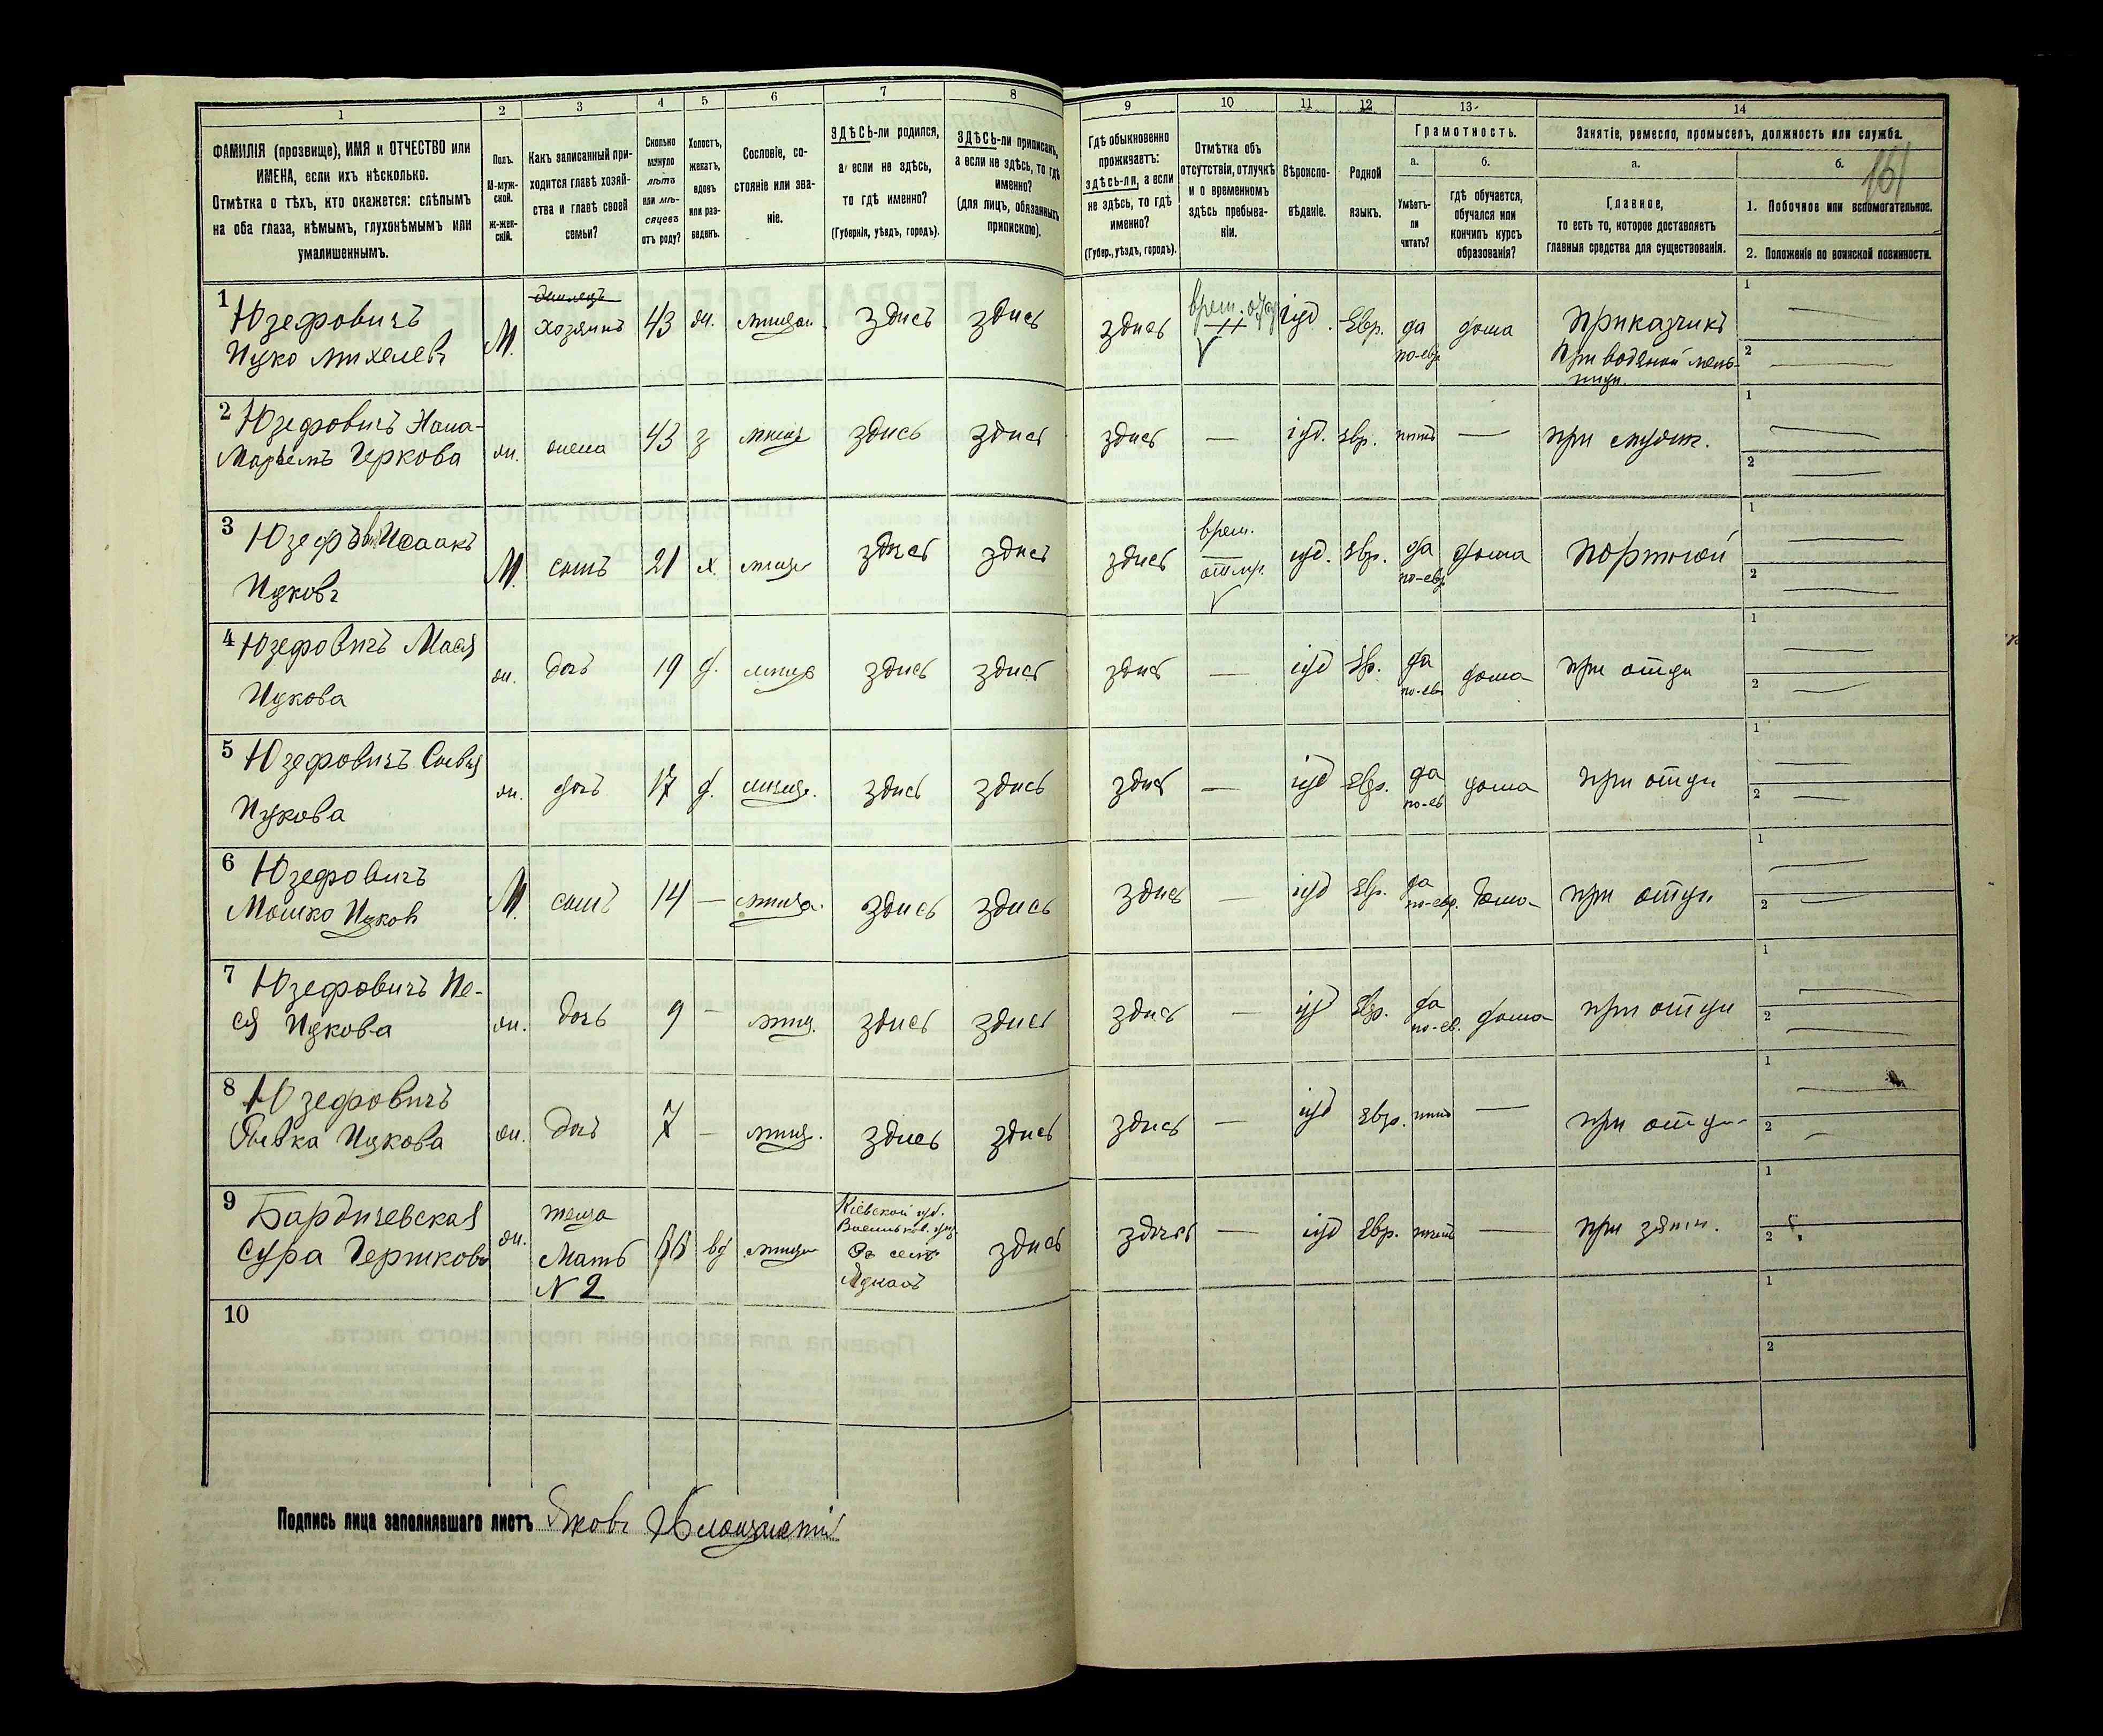 1
2
3
4
5
6
7
8
ФАМИЛІЯ (прозвище), ИМЯ и ОТЧЕСТВО или
ИМЕНА, если ихъ нѣсколько.
Отмѣтка о тѣхъ, кто окажется: слѣпымъ
на оба глаза, нѣмымъ, глухонѣмымъ или
умалишеннымъ.
Полъ.
М-муж-
ской.
Ж-жен-
скій.
Какъ записанный при-
ходится главѣ хозяй-
ства и главѣ своей
семьи?
Сколько
минуло
лѣтъ
или мѣ-
сяцевъ
отъ роду?
Холостъ,
женатъ,
вдовъ
или раз-
веденъ.
Сословіе, со-
стояніе или зва-
ніе.
ЗДѢСЬ-ли родился,
а если не здѣсь,
то гдѣ именно?
(Губернія, уѣздъ, городъ).
ЗДѢСЬ-ли приписанъ,
а если не здѣсь, то гдѣ
именно?
(для лицъ, обязанныхъ
припискою).
9
10
11
12
13
14
Гдѣ обыкновенно
проживаетъ:
здѣсь-ли, а если
не здѣсь, то гдѣ
именно?
(Губер., уѣздъ, городъ).
Отмѣтка объ
отсутствіи, отлучкѣ
и о временномъ
здѣсь пребыва-
ніи.
Вѣроиспо-
вѣданіе.
Родной
языкъ.
Грамотность.
а.
б.
Умѣетъ-
ли
читать?
гдѣ обучается,
обучался или
кончилъ курсъ
образованія?
Занятіе, ремесло, промыселъ, должность или служба.
а.
б.
161
Главное,
то есть то, которое доставляетъ
главныя средства для существованія.
1. Побочное или вспомогательное.
2. Положеніе по воинской повинности.
1 Юзефовичъ
Ицко Михелевъ
М. хозяинъ 43 ж. мѣщан. здѣсь здѣсь
здѣсь врем. іуд. Евр. да по-евр. дома
Приказчикъ
при водяной мель-
ницѣ.
1
2
2 Юзефовичъ Хана-
Марьемъ Геркова
ж. жена 43 з мѣщ. здѣсь здѣсь
здѣсь — іуд. евр. нѣтъ — при мужѣ.
1
2
3 Юзефъвичъ Исаакъ
Ицковъ
М. сынъ 21 х. мѣщ. здѣсь здѣсь
здѣсь врем. отлуч. іуд. евр. да по-евр. дома Портной
1
2
4 Юзефовичъ Мася
Ицкова
ж. дочь 19 д. мѣщ. здѣсь здѣсь
здѣсь — іуд евр. да по-евр дома при отцѣ
1
2
5 Юзефовичъ Сивья
Ицкова
ж. дочь 17 д. мѣщ. здѣсь здѣсь
здѣсь — іуд евр. да по-ев дома при отцѣ
1
2
6 Юзефовичъ
Мошко Ицков
М. сынъ 14 — мѣща. здѣсь здѣсь
здѣсь — іуд евр. да по-евр. дома при отцѣ
1
2
7 Юзефовичъ Пе-
ся Ицкова
ж. дочь 9 — мѣщ. здѣсь здѣсь
здѣсь — іуд евр. да по-ев. дома при отцѣ
1
2
8 Юзефовичъ
Ривка Ицкова
ж. дочь 7 — мѣщ. здѣсь здѣсь
здѣсь — іуд евр. нѣтъ — при отцѣ
1
2
9 Бардичевская
Сура Гершкова
ж. теща
Мать
N 2
вд мѣщан
Кіевской губ.
Васильков. уѣз.
здѣсь
здѣсь — іуд евр. нѣтъ — при зятѣ.
1
2
10
1
2
Подпись лица заполнявшаго листъ Яковъ